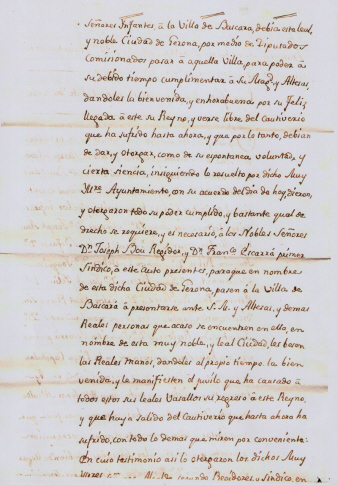 Señores Infantes, â la Villa de Bascara, debia esta leal,
y noble Ciudad de Gerona, por medio de Diputados
comisionados pasar â aquella Villa, para poder â
su debido tiempo cumplimentar â su Mag.d y Altesas,
dandoles la bienvenida, y enhorabuena por su feliz
llegada â este su Reyno, y verse libre del Cautiverio
que ha sufrido hasta ahora, y que por lo tanto, debian
de dar, y otorgar, como de su espontanea voluntad, y
cierta siencia, insiguiendo lo resuelto por dicho Muy
Iltre Ayuntamiento, en su acuerdo del dia de hoy, dieron,
y otorgaron todo su poder cumplido, y bastante qual de
drecho se requiere, y es necesario, â los Nobles Señores
Dn. Joseph Bou Regidor, y Dn. Franco. Escarrá primer
Sindico, â este auto presentes, paraque en nombre
de esta dicha Ciudad de Gerona, pasen â la Villa de
Bascará â presentarse ante S. M. y Altesas, y demas
Reales personas que acaso se encuentren en ella, en
nómbre de esta muy noble, y leal Ciudad, les besen
las Reales manos, dandoles al propio tiempo la bien
venida, y le manifiesten el jubilo que ha causado â
todos estos sus leales Vasallos su regreso â este Reyno,
y que haya salido del Cautiverio que hasta ahora ha
sufrido, con todo lo demas que miren por conveniente:
En cuio testimonio asi lo otorgaron los dichos Muy
Iltres Regidores y Sindico, en